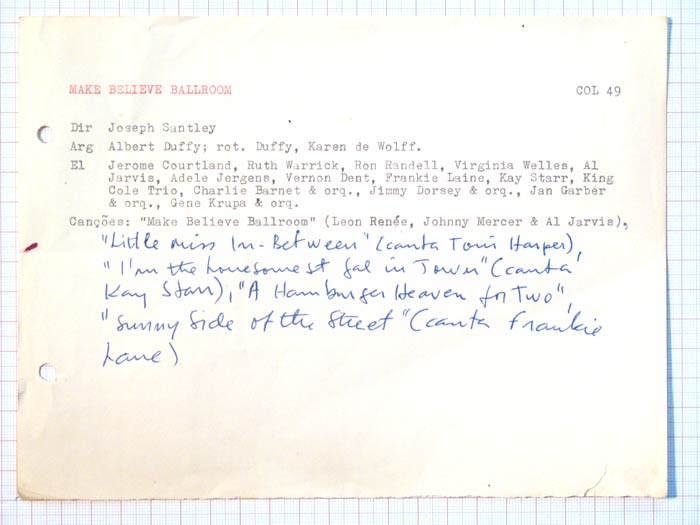 MAKE BELIEVE BALLROOM COL 49
Dir Joseph Santley
Arg Albert Duffy; rot. Duffy, Karen de Wolff.
El Jerome Courtland, Ruth Warrick, Ron Randell, Virginia Welles, Al
Jarvis, Adele Jergens, Vernon Dent, Frankie Laine, Kay Starr, King
Cole Trio, Charlie Barnet & orq., Jimmy Dorsey & orq., Jan Garber
& orq., Gene Krupa & orq.
Canções: "Make Believe Ballroom" (Leon Renée, Johnny Mercer & Al Jarvis),
"Little miss In-Between" (canta Toni Harper),
"I'm the lonesomest gal in Town" (canta
Kay Starr), "A Hamburger Heaven for Two",
"Sunny Side of the Street" (canta Frankie
Lane)